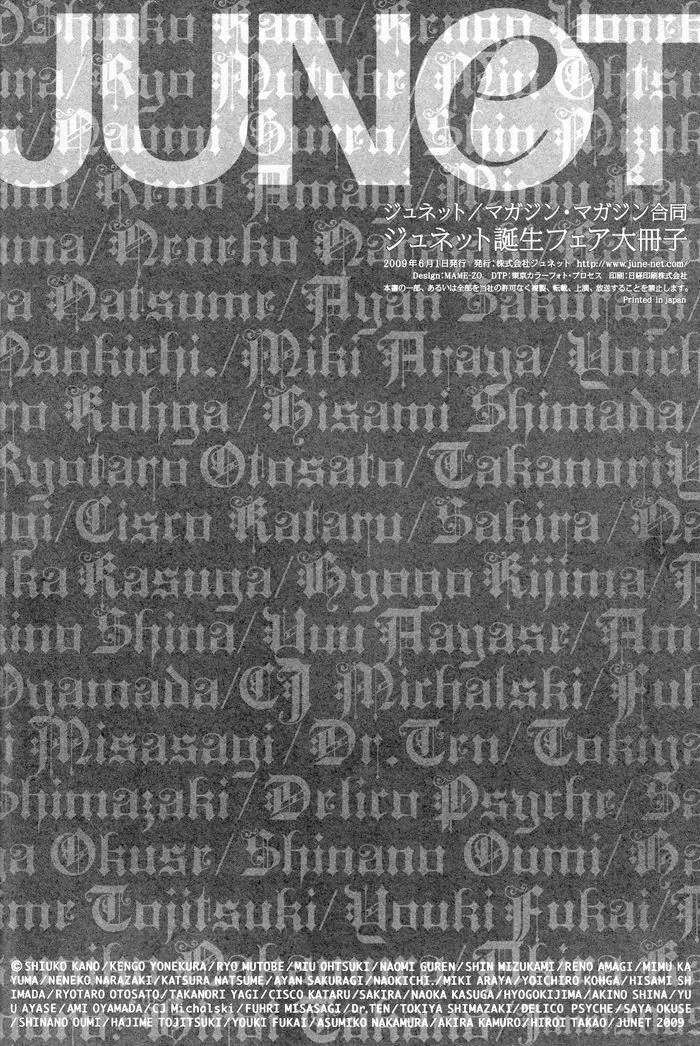 JUNeT
ジュネット／マガジン・マガジン合同
ジュネット誕生フェア大冊子
2009年6月1日発行 発行：株式会社ジュネット http://www.june-net.com/
Design:MAME-ZO. DTP:東京カラーフォト・プロセス 印刷：日経印刷株式会社
本書の一部、あるいは全部を当社の許可なく複製、転載、上演、放送することを禁止します。
Printed in japan
Shiuko Kano/Kengo Yonek
ura/Ryo Mutobe/Miu Ohtsu
ki/Naomi Guren/Shin Mizuk
ami/Reno Amagi/Mimu
Kayuma/Neneko Naraza
a Natsume/Ayan Sakurag
Naokichi./Miki Araya/Yoich
ro Kohga/Hisami Shimada/
Ryotaro Otosato/TakanoriY
agi/Cisco Kataru/Sakira/Na
oka Kasuga/Hyogo Kijima/
ino Shina/Yuu Aayase/Am
Oyamada/CJ Michalski/Fuh
i Misasagi/Dr.Ten/Tokiya
Shimazaki/Delico Psyche/Sa
ya Okuse/Shinano Oumi/Ha
ime Tojitsuki/Youki Fukai/
©SHIUKO KANO/KENGO YONEKURA/RYO MUTOBE/MIU OHTSUKI/NAOMI GUREN/SHIN MIZUKAMI/RENO AMAGI/MIMU KA
YUMA/NENEKO NARAZAKI/KATSURA NATSUME/AYAN SAKURAGI/NAOKICHI./MIKI ARAYA/YOICHIRO KOHGA/HISAMI SH
IMADA/RYOTARO OTOSATO/TAKANORI YAGI/CISCO KATARU/SAKIRA/NAOKA KASUGA/HYOGOKIJIMA/AKINO SHINA/YU
U AYASE/AMI OYAMADA/CJ Michalski/FUHRI MISASAGI/Dr.TEN/TOKIYA SHIMAZAKI/DELICO PSYCHE/SAYA OKUSE
/SHINANO OUMI/HAJIME TOJITSUKI/YOUKI FUKAI/ASUMIKO NAKAMURA/AKIRA KAMURO/HIROI TAKAO/JUNET 2009